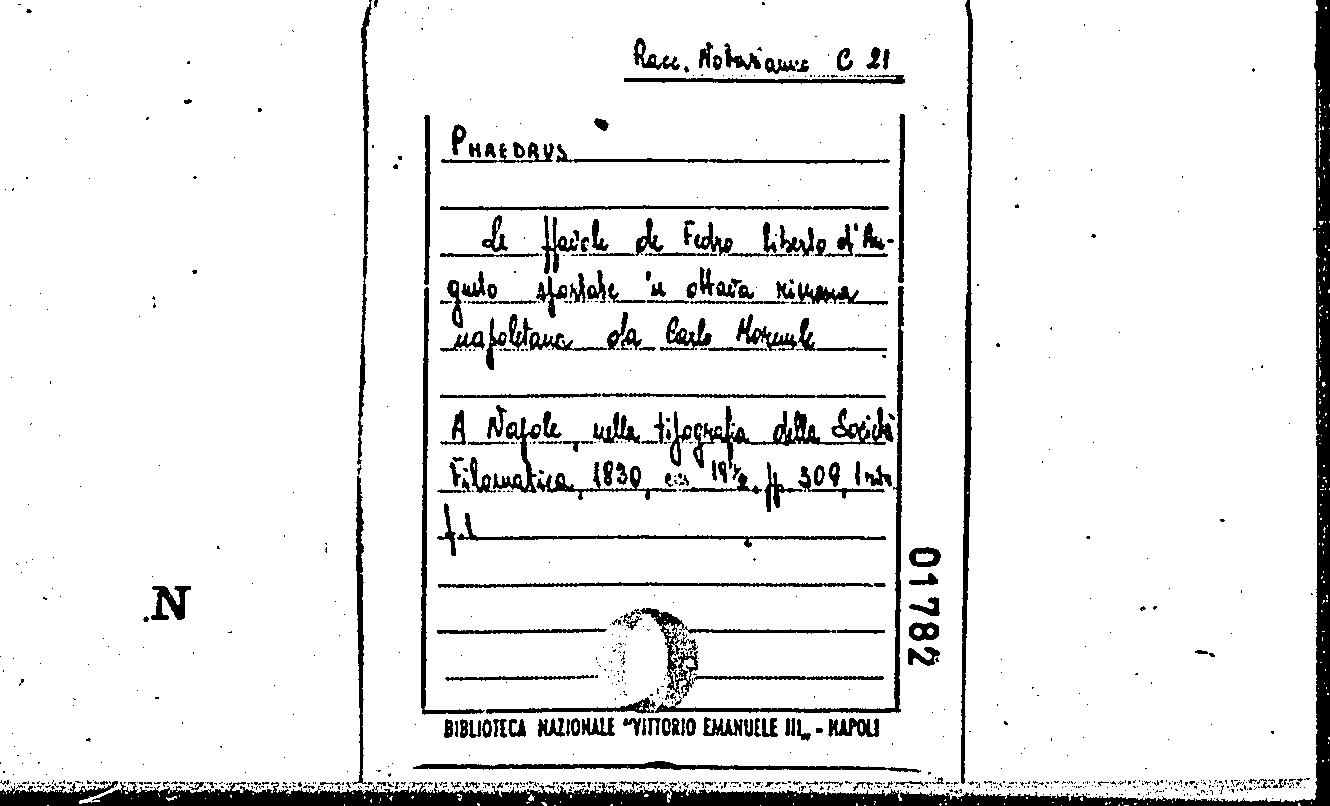 Racc. Notarianni C 21
PHAEDRUS
Le ffavole de Fedro liberto d'Au-
gusto sportate 'n ottava rimma
napoletana da Carlo Mormile
A Napole, nella tipografia della Società
Filomatica, 1830, cm 19½, pp. 309, 1
f.l
N
01782
BIBLIOTECA NAZIONALE "VITTORIO EMANUELE III„ - NAPOLI